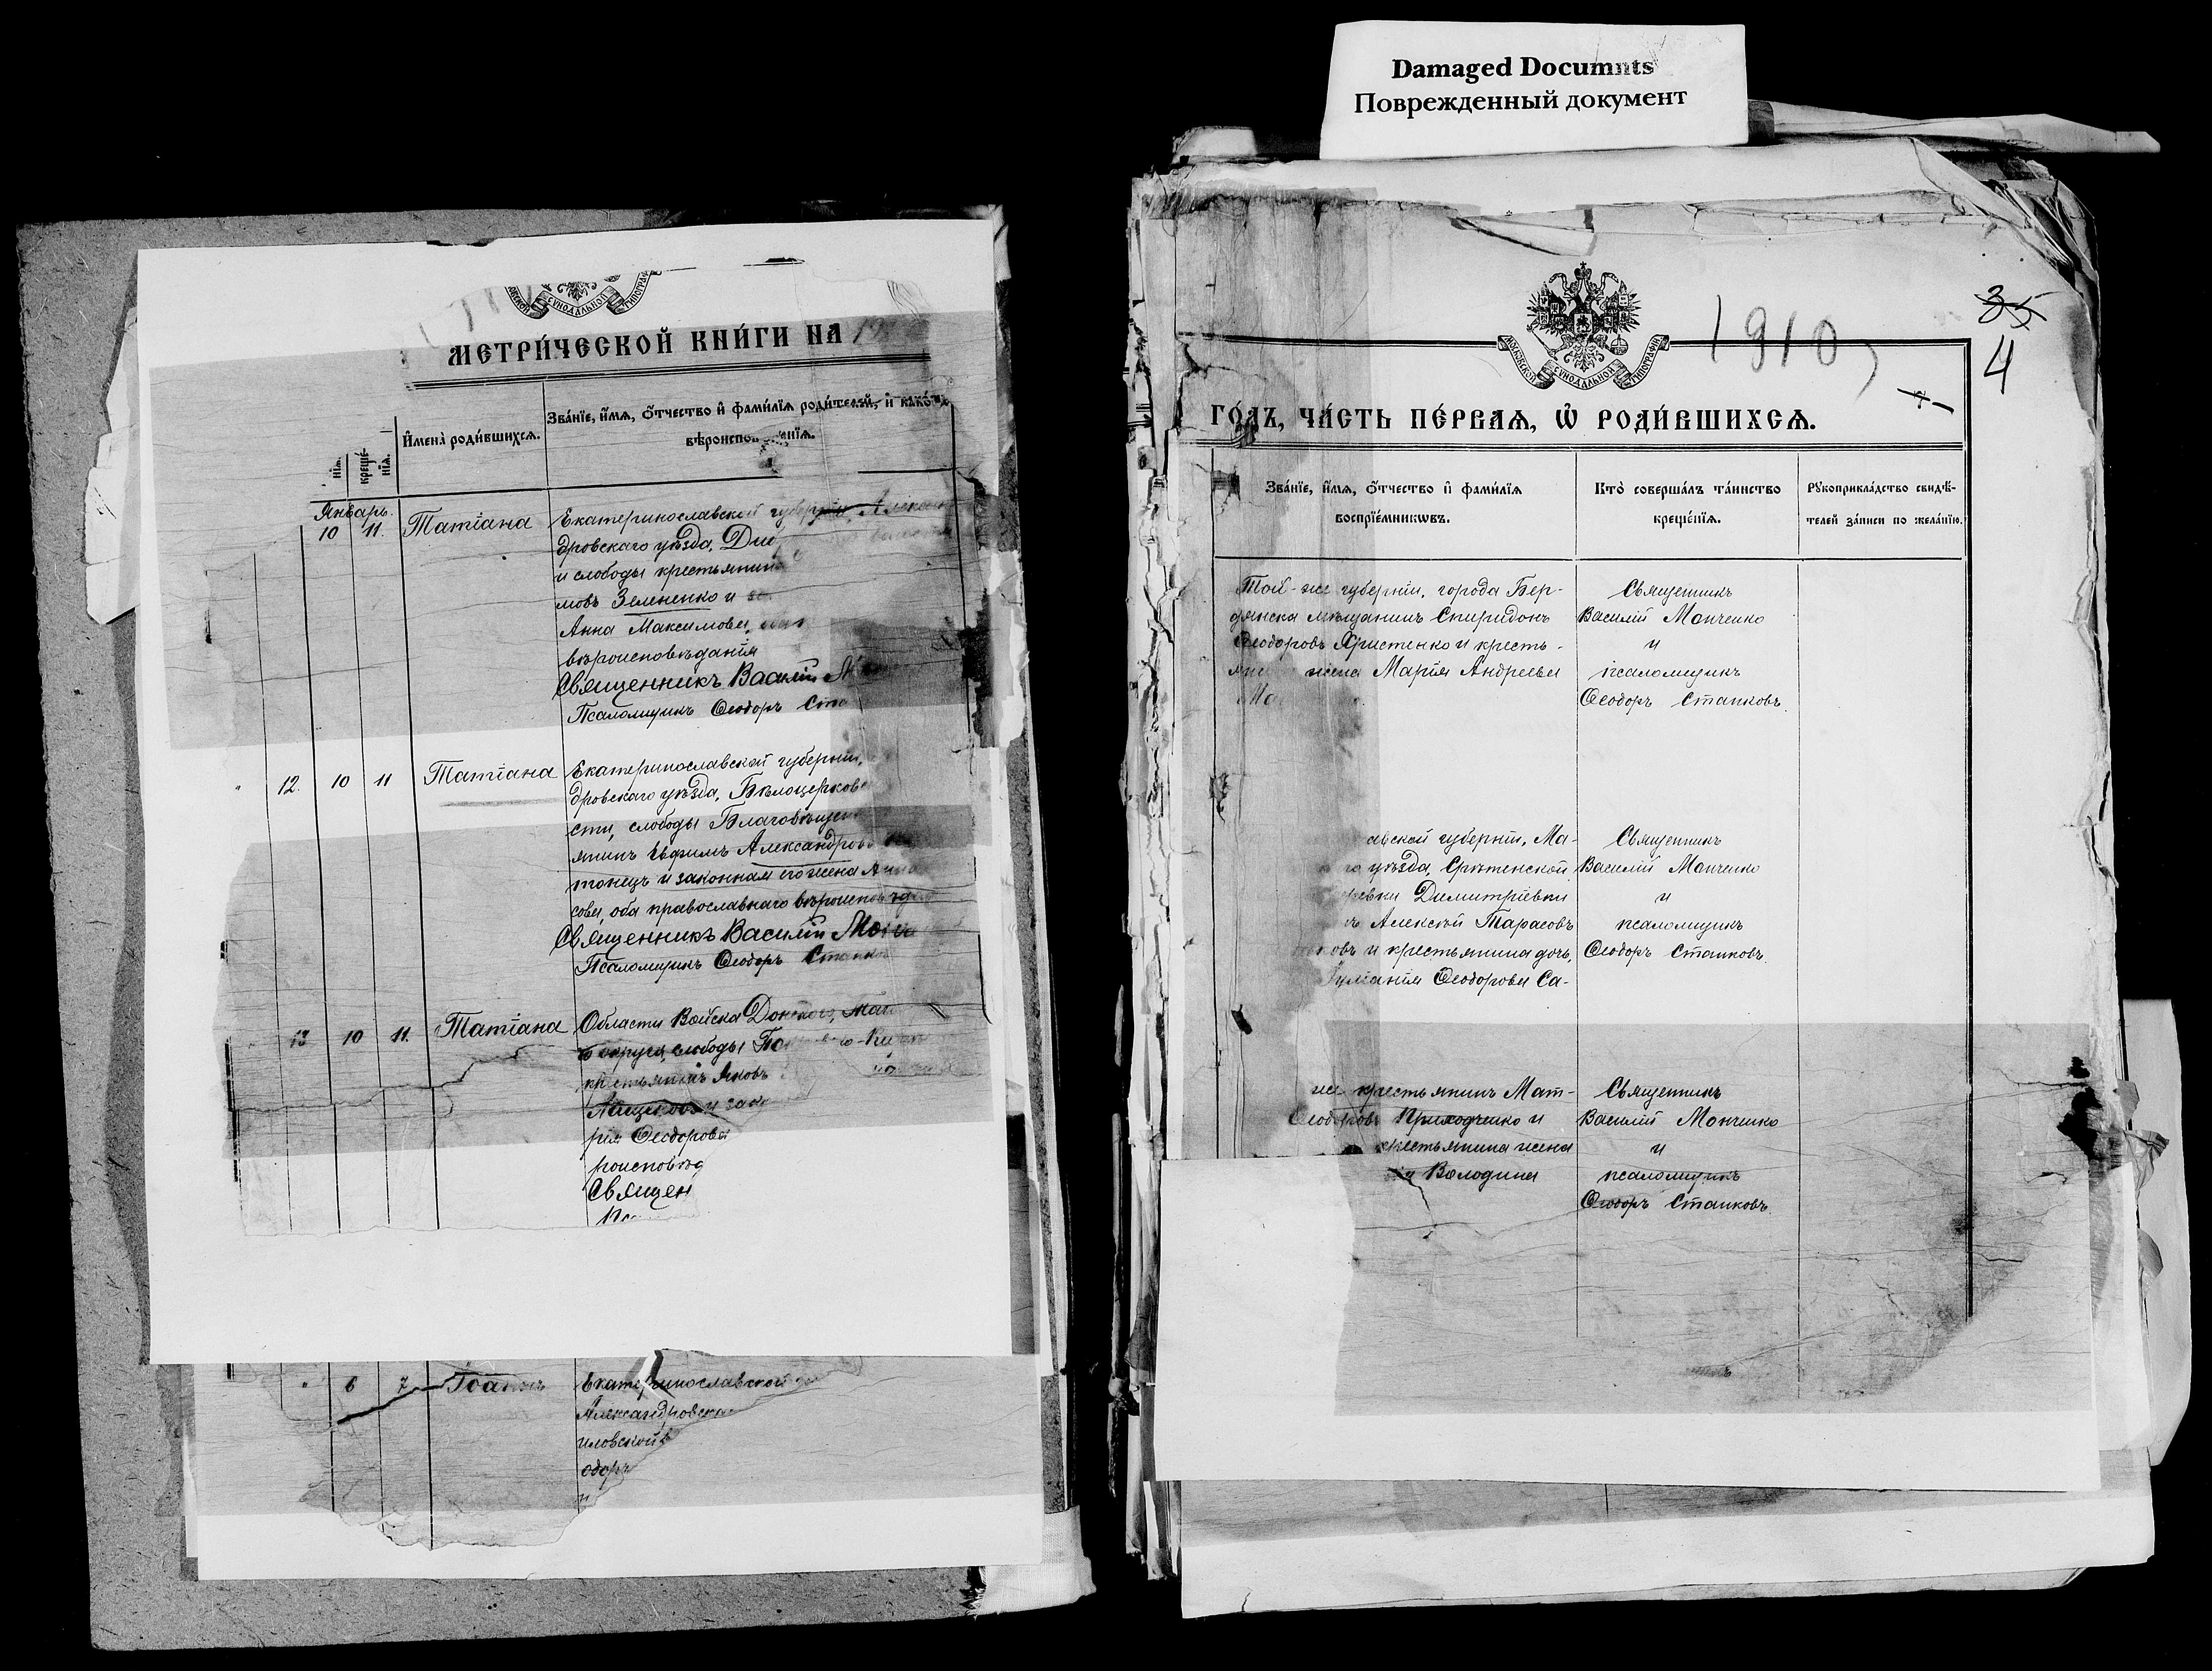 Damaged Documnts
Поврежденный документ
СѴНОДАЛЬНОЙ
МЕТРИ́ЧЕСКОЙ КНИ́ГИ НА
И҆мена̀ роди́вшихсѧ.
Зва́нїе, и҆́мѧ, ѻ҆́тчество и҆ фами́лїѧ роди́телей, и҆ како́гѡ
вѣроиспов
нїѧ.
креще́-
нїѧ.
Январь.
10 11. Татіана
Екатеринославской губерніи, Алексан
дровскаго уѣзда,
и слободы крестьянин
мовъ Зелененко и
Анна Максимова,
вѣроисповѣданія
Священникъ Василій
Псаломщикъ Ѳеодоръ Ста
12. 10 11 Татіана
Екатеринославской губерніи,
дровскаго уѣзда, Бѣлоцерков
сти, слободы Благовѣщен
янинъ Евфимъ Александров
тонецъ и законная его жена Анна
сова, оба православнаго вѣроисповѣд
Священникъ Василій Мон
Псаломщикъ Ѳеодоръ Станков
13 10 11. Татіана
Области Войска Донского,
округа, слободы
крестьянинъ Яковъ
и зак
рія Ѳеодорова
роисповѣд
Священ
6 7 Іоаннъ
Екатеринославской
Александровска
иловской
одоръ
и
1910
35
4
МОСКОВСКОЙ СѴНОДАЛЬНОЙ ТИПОГРАФІИ
ГО́ДЪ, ЧА́СТЬ ПЕ́РВАѦ, Ѡ҆ РОДИ́ВШИХСѦ.
Зва́нїе, и҆́мѧ, ѻ҆́тчество и҆ фами́лїѧ
воспрїе́мникѡвъ.
Кто̀ соверша́лъ та́инство
креще́нїѧ.
Рꙋкоприкла́дство свидѣ́-
телей за́писи по жела́нїю.
Той-же губерніи, города Бер-
дянска мѣщанинъ Спиридонъ
Ѳеодоровъ Христенко и кресть-
жена Марія Андреева
Священникъ
Василій Монченко
и
псаломщикъ
Ѳеодоръ Станковъ.
авской губерніи, Ма-
го уѣзда, Срѣтенской
ревни Димитріевки
ъ Алексѣй Тарасовъ
овъ и крестьянина дочь,
Ѳеодорова Са-
Священникъ
Василій Монченко
и
псаломщикъ
Ѳеодоръ Станковъ.
же крестьянинъ Мат-
Ѳеодоровъ Приходченко и
крестьянина жена
Володина
Священникъ
Василій Монченко
и
псаломщикъ
Ѳеодоръ Станковъ.